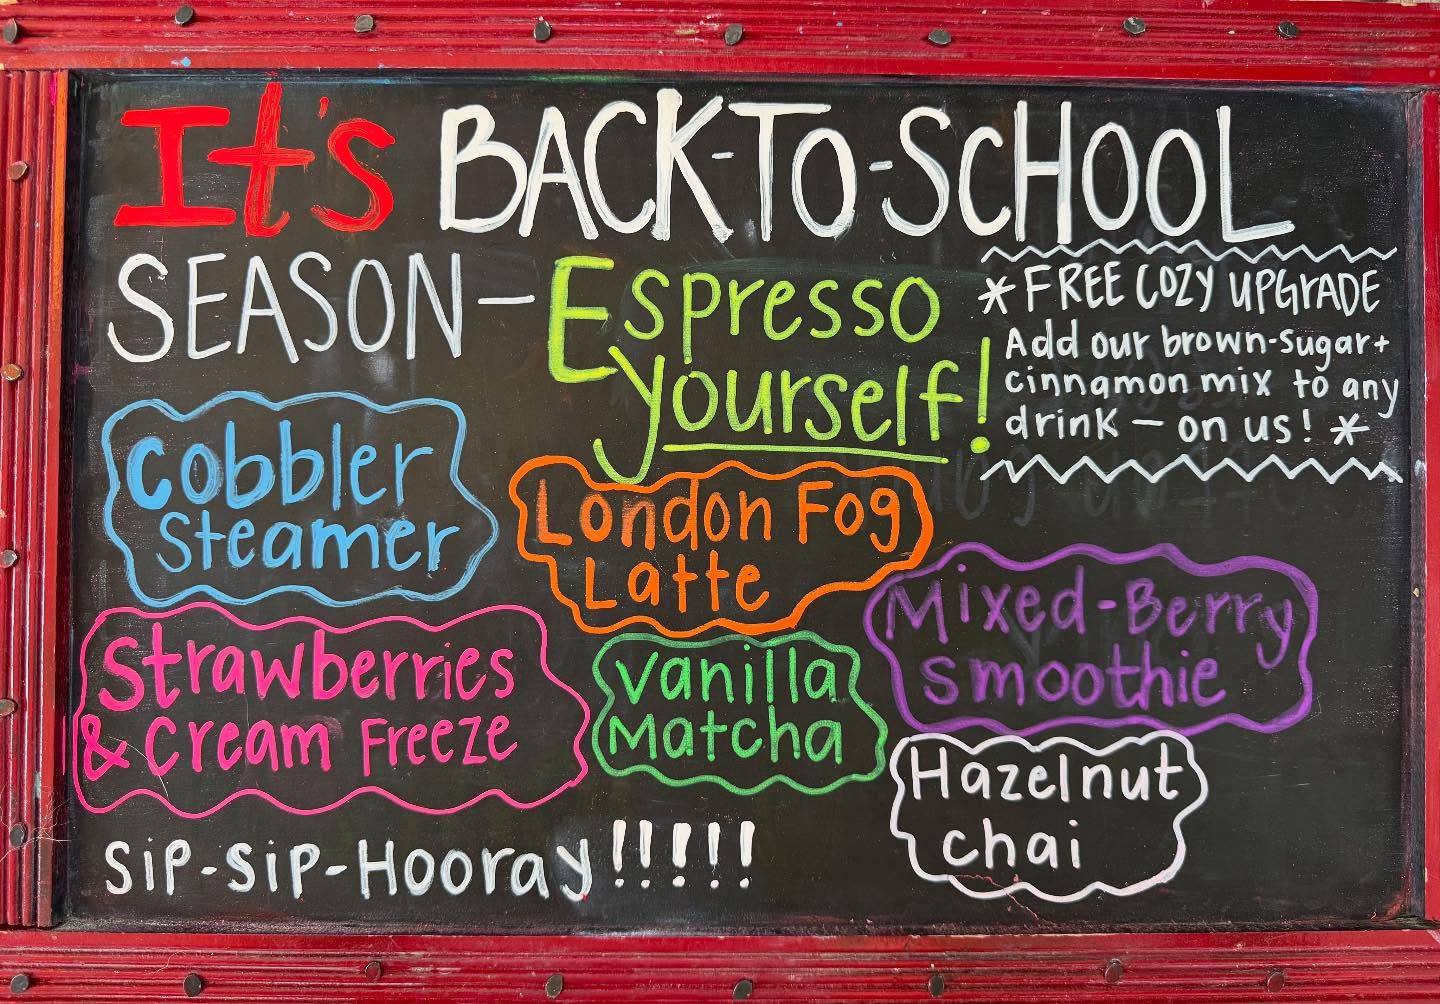 It's BACK-TO-SCHOOL
SEASON - Espresso
yourself!
*FREE COZY UPGRADE
Add our brown-sugar +
cinnamon mix to any
drink - on us! *
Cobbler
Steamer
London Fog
Latte
Mixed-Berry
smoothie
Strawberries
& Cream Freeze
Vanilla
Matcha
Hazelnut
chai
SIP-SIP-Hooray!!!!!